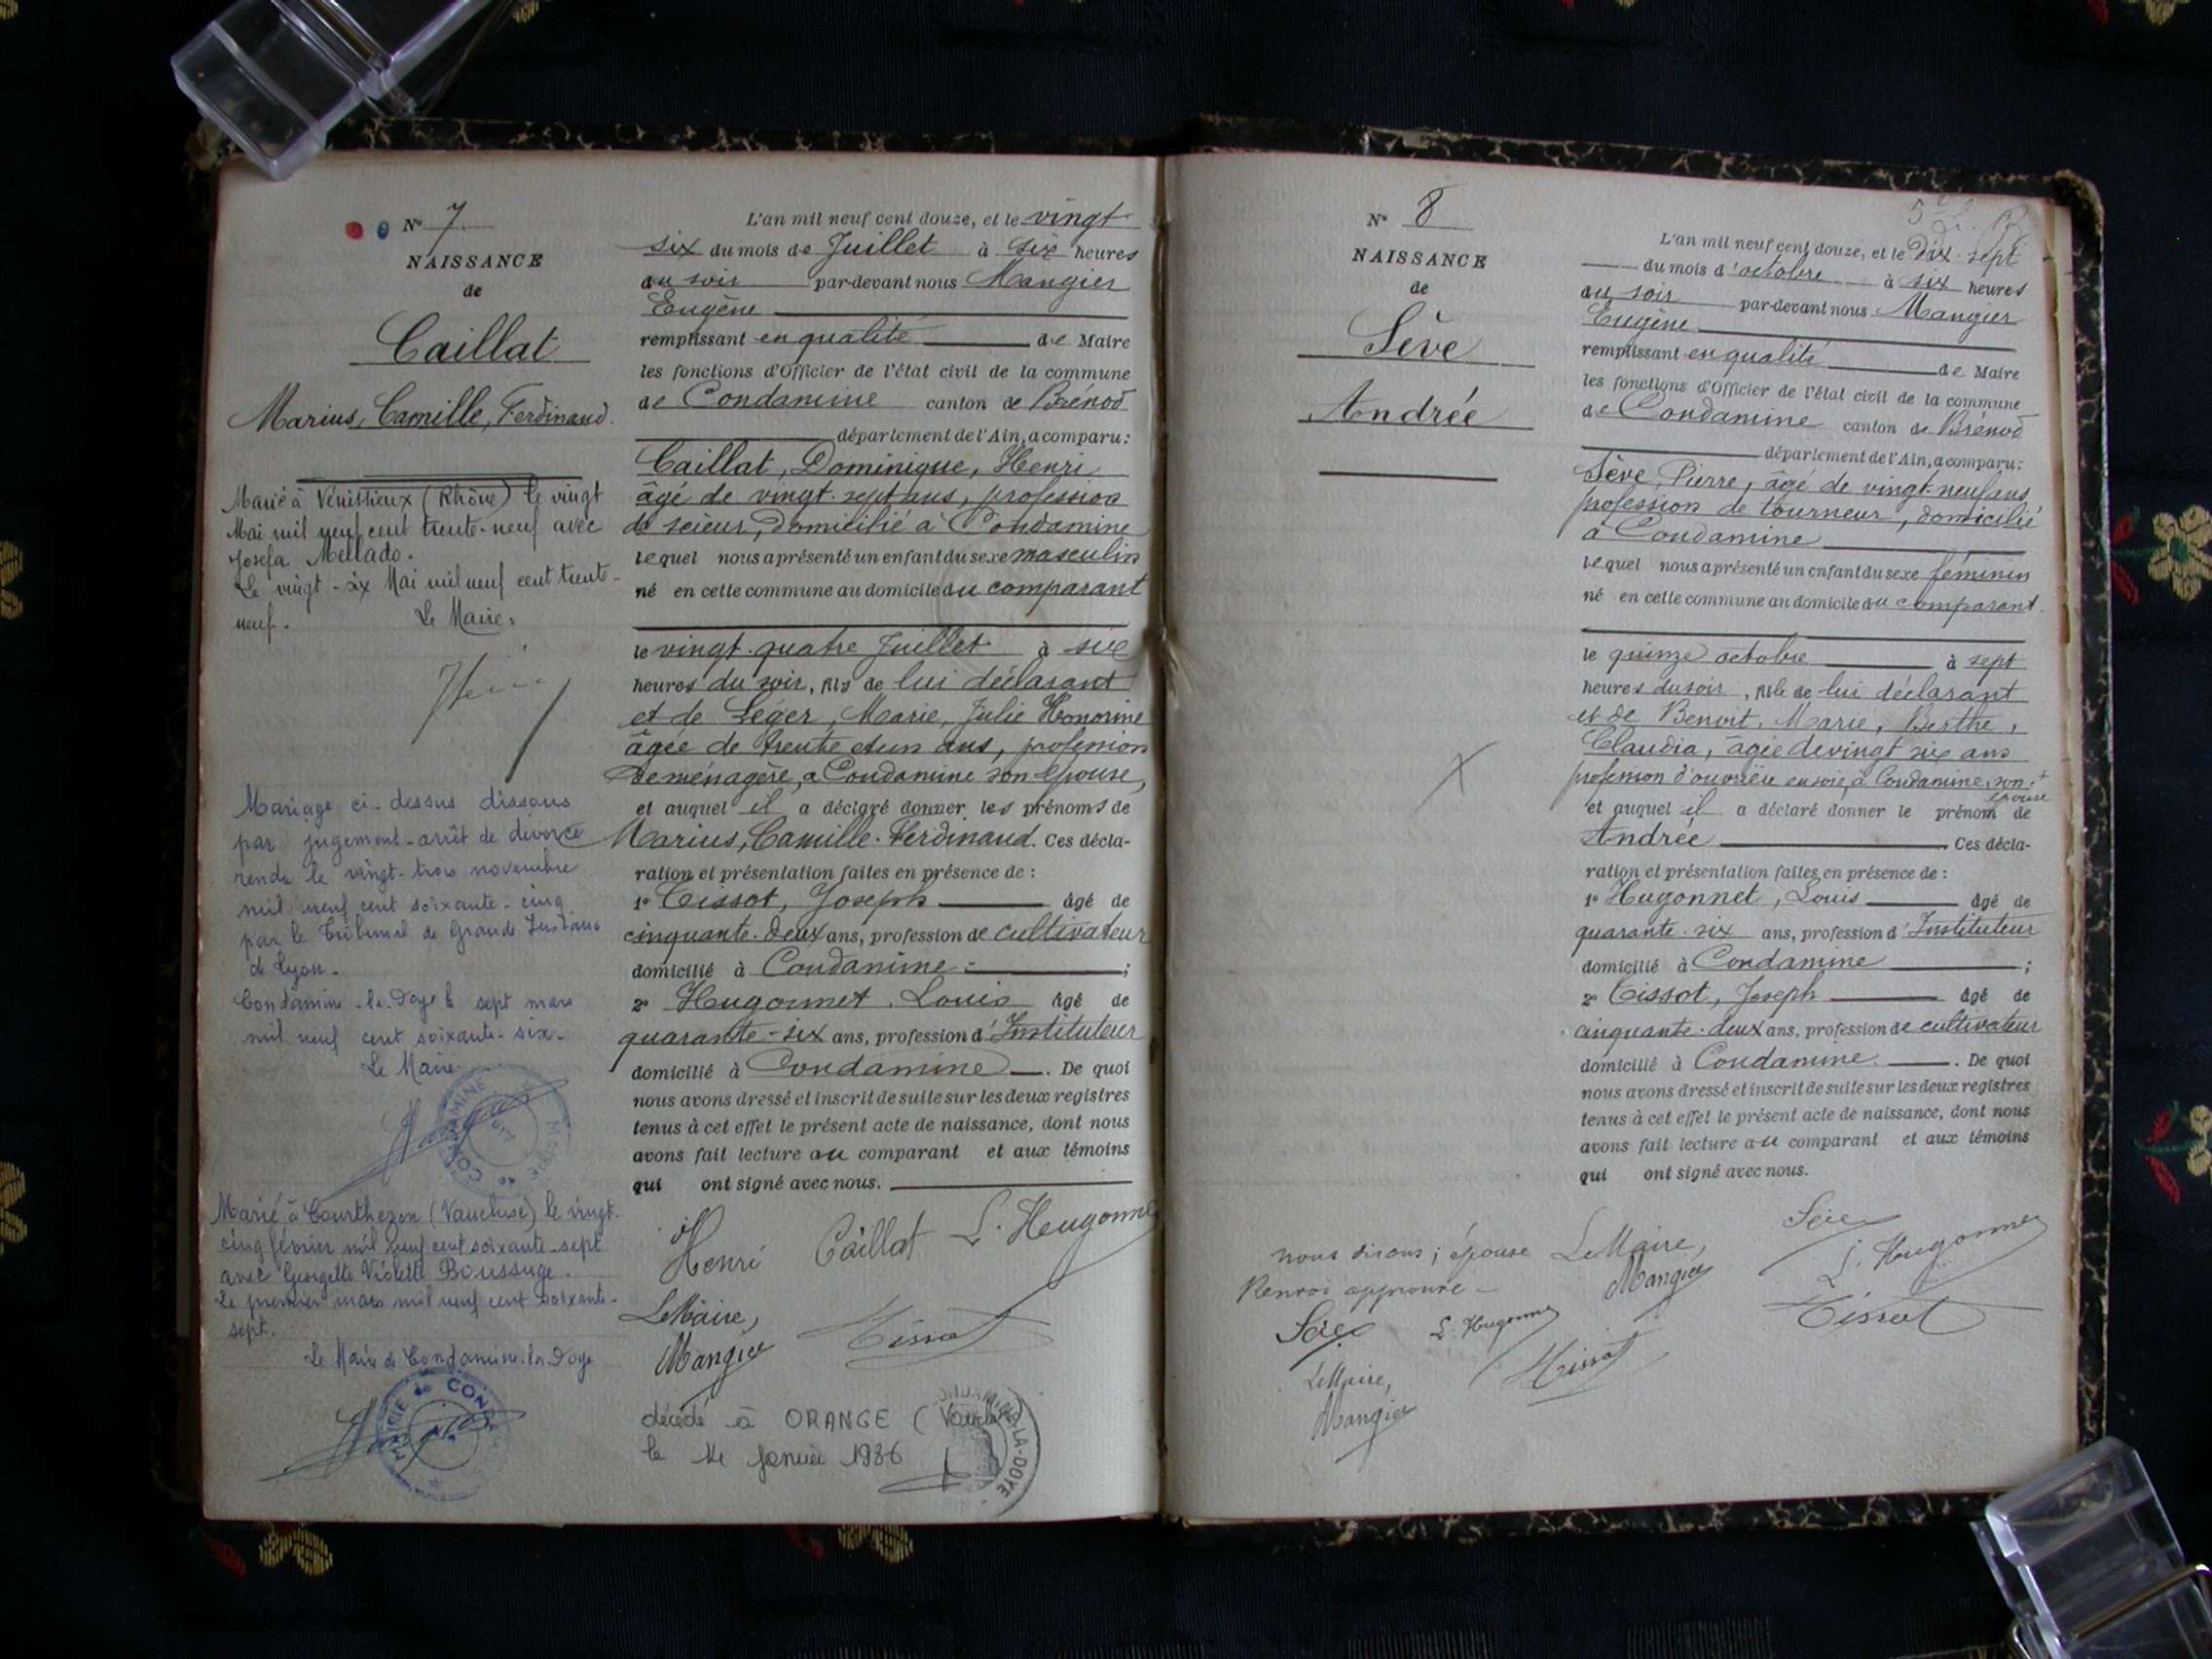 N° 7
NAISSANCE
de
Caillat
Marius, Camille, Ferdinand.
Marié à Vénissieux (Rhône) le vingt
Mai mil neuf cent trente-neuf avec
Josefa Mellado.
Le vingt-six Mai mil neuf cent trente-
neuf. Le Maire:
Mariage ci-dessus dissous
par jugement-arrêt de divorce
rendu le vingt-trois novembre
mil neuf cent soixante-cinq
par le Tribunal de Grande Instance
de Lyon.
Condamine-la-Doye le sept mars
mil neuf cent soixante-six.
Le Maire
MAIRIE de CONDAMINE
Ain
Marié à Courthezon (Vaucluse) le vingt-
cinq février mil neuf cent soixante-sept
avec Georgette Violette Boussuge.
Le premier mars mil neuf cent soixante-
sept.
Le Maire de Condamine-la-Doye
MAIRIE de COND
L'an mil neuf cent douze, et le vingt
six du mois de Juillet à six heures
du soir par-devant nous Mangier
Eugène
remplissant en qualité de Maire
les fonctions d'Officier de l'état civil de la commune
de Condamine canton de Brénod
département de l'Ain, a comparu:
Caillat, Dominique, Henri
âgé de vingt-sept ans, profession
de scieur, domicilié à Condamine
lequel nous a présenté un enfant du sexe masculin
né en cette commune au domicile du comparant
le vingt-quatre Juillet à six
heures du soir, fils de lui déclarant
et de Léger, Marie, Julie Honorine
âgée de trente et un ans, profession
de ménagère, à Condamine son épouse,
et auquel il a déclaré donner les prénoms de
Marius, Camille-Ferdinand. Ces décla-
ration et présentation faites en présence de :
1° Tissot, Joseph âgé de
cinquante-deux ans, profession de cultivateur
domicilié à Condamine ;
2° Hugonnet, Louis âgé de
quarante-six ans, profession d'Instituteur
domicilié à Condamine. De quoi
nous avons dressé et inscrit de suite sur les deux registres
tenus à cet effet le présent acte de naissance, dont nous
avons fait lecture au comparant et aux témoins
qui ont signé avec nous.
Henri Caillat L. Hugonnet
Le Maire,
Mangier Tissot
décédé à ORANGE (Vaucluse)
le janvier 1986
LA-DOYE
N° 8
NAISSANCE
de
Sève
Andrée
L'an mil neuf cent douze, et le Dix-sept
du mois d'octobre à six heures
du soir par-devant nous Mangier
Eugène
remplissant en qualité de Maire
les fonctions d'Officier de l'état civil de la commune
de Condamine canton de Brénod
département de l'Ain, a comparu:
Sève, Pierre, âgé de vingt-neuf ans
profession de tourneur, domicilié
à Condamine
lequel nous a présenté un enfant du sexe féminin
né en cette commune au domicile du comparant.
le quinze octobre à sept
heures du soir, fille de lui déclarant
et de Benoit, Marie, Berthe,
Claudia, âgée de vingt six ans
profession d'ouvrière en soie, à Condamine, son +
épouse
et auquel il a déclaré donner le prénom de
Andrée Ces décla-
ration et présentation faites en présence de :
1° Hugonnet, Louis âgé de
quarante-six ans, profession d'Instituteur
domicilié à Condamine ;
2° Tissot, Joseph âgé de
cinquante-deux ans, profession de cultivateur
domicilié à Condamine. De quoi
nous avons dressé et inscrit de suite sur les deux registres
tenus à cet effet le présent acte de naissance, dont nous
avons fait lecture au comparant et aux témoins
qui ont signé avec nous.
nous disons; épouse Le Maire, Sève
Renvoi approuvé - Mangier L. Hugonnet
Sève L. Hugonnet Tissot
Le Maire, Tissot
Mangier